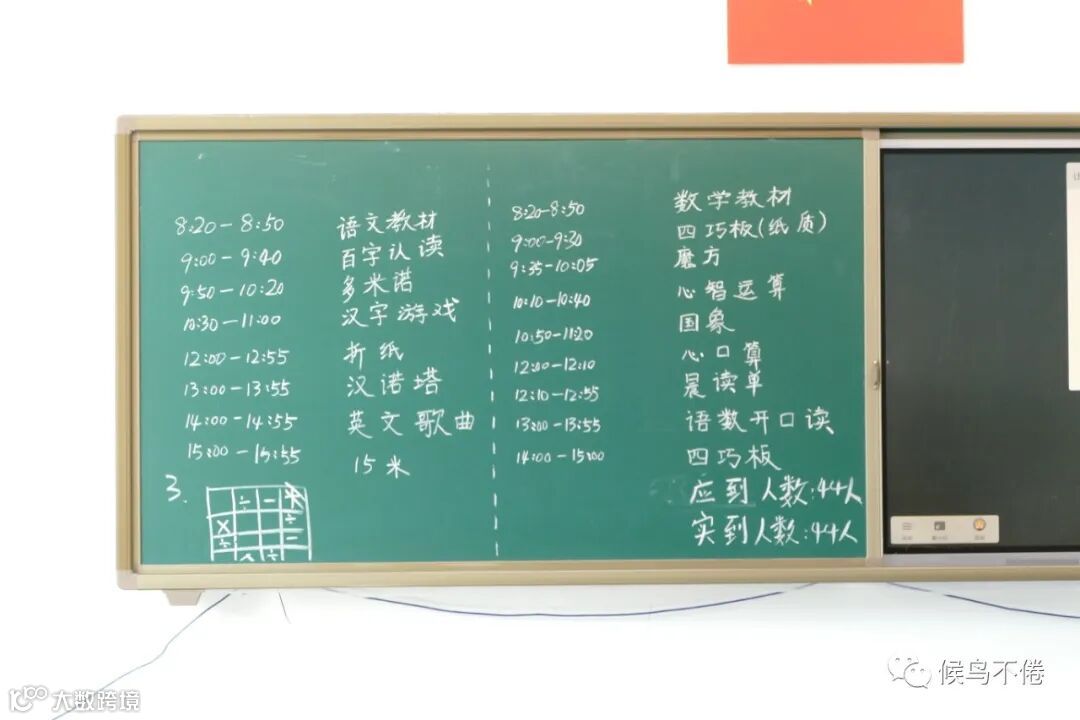 8:20-8:50 语文教材
9:00-9:40 百字认读
9:50-10:20 多米诺
10:30-11:00 汉字游戏
12:00-12:55 折纸
13:00-13:55 汉诺塔
14:00-14:55 英文歌曲
15:00-15:55 15米
3.
÷ -
× ÷
÷ -
÷
8:20-8:50 数学教材
9:00-9:30 四巧板(纸质)
9:35-10:05 魔方
10:10-10:40 心智运算
10:50-11:20 国象
12:00-12:10 心口算
12:10-12:55 晨读单
13:00-13:55 语数开口读
14:00-15:00 四巧板
应到人数:44人
实到人数:44人
候鸟不倦
大数跨境